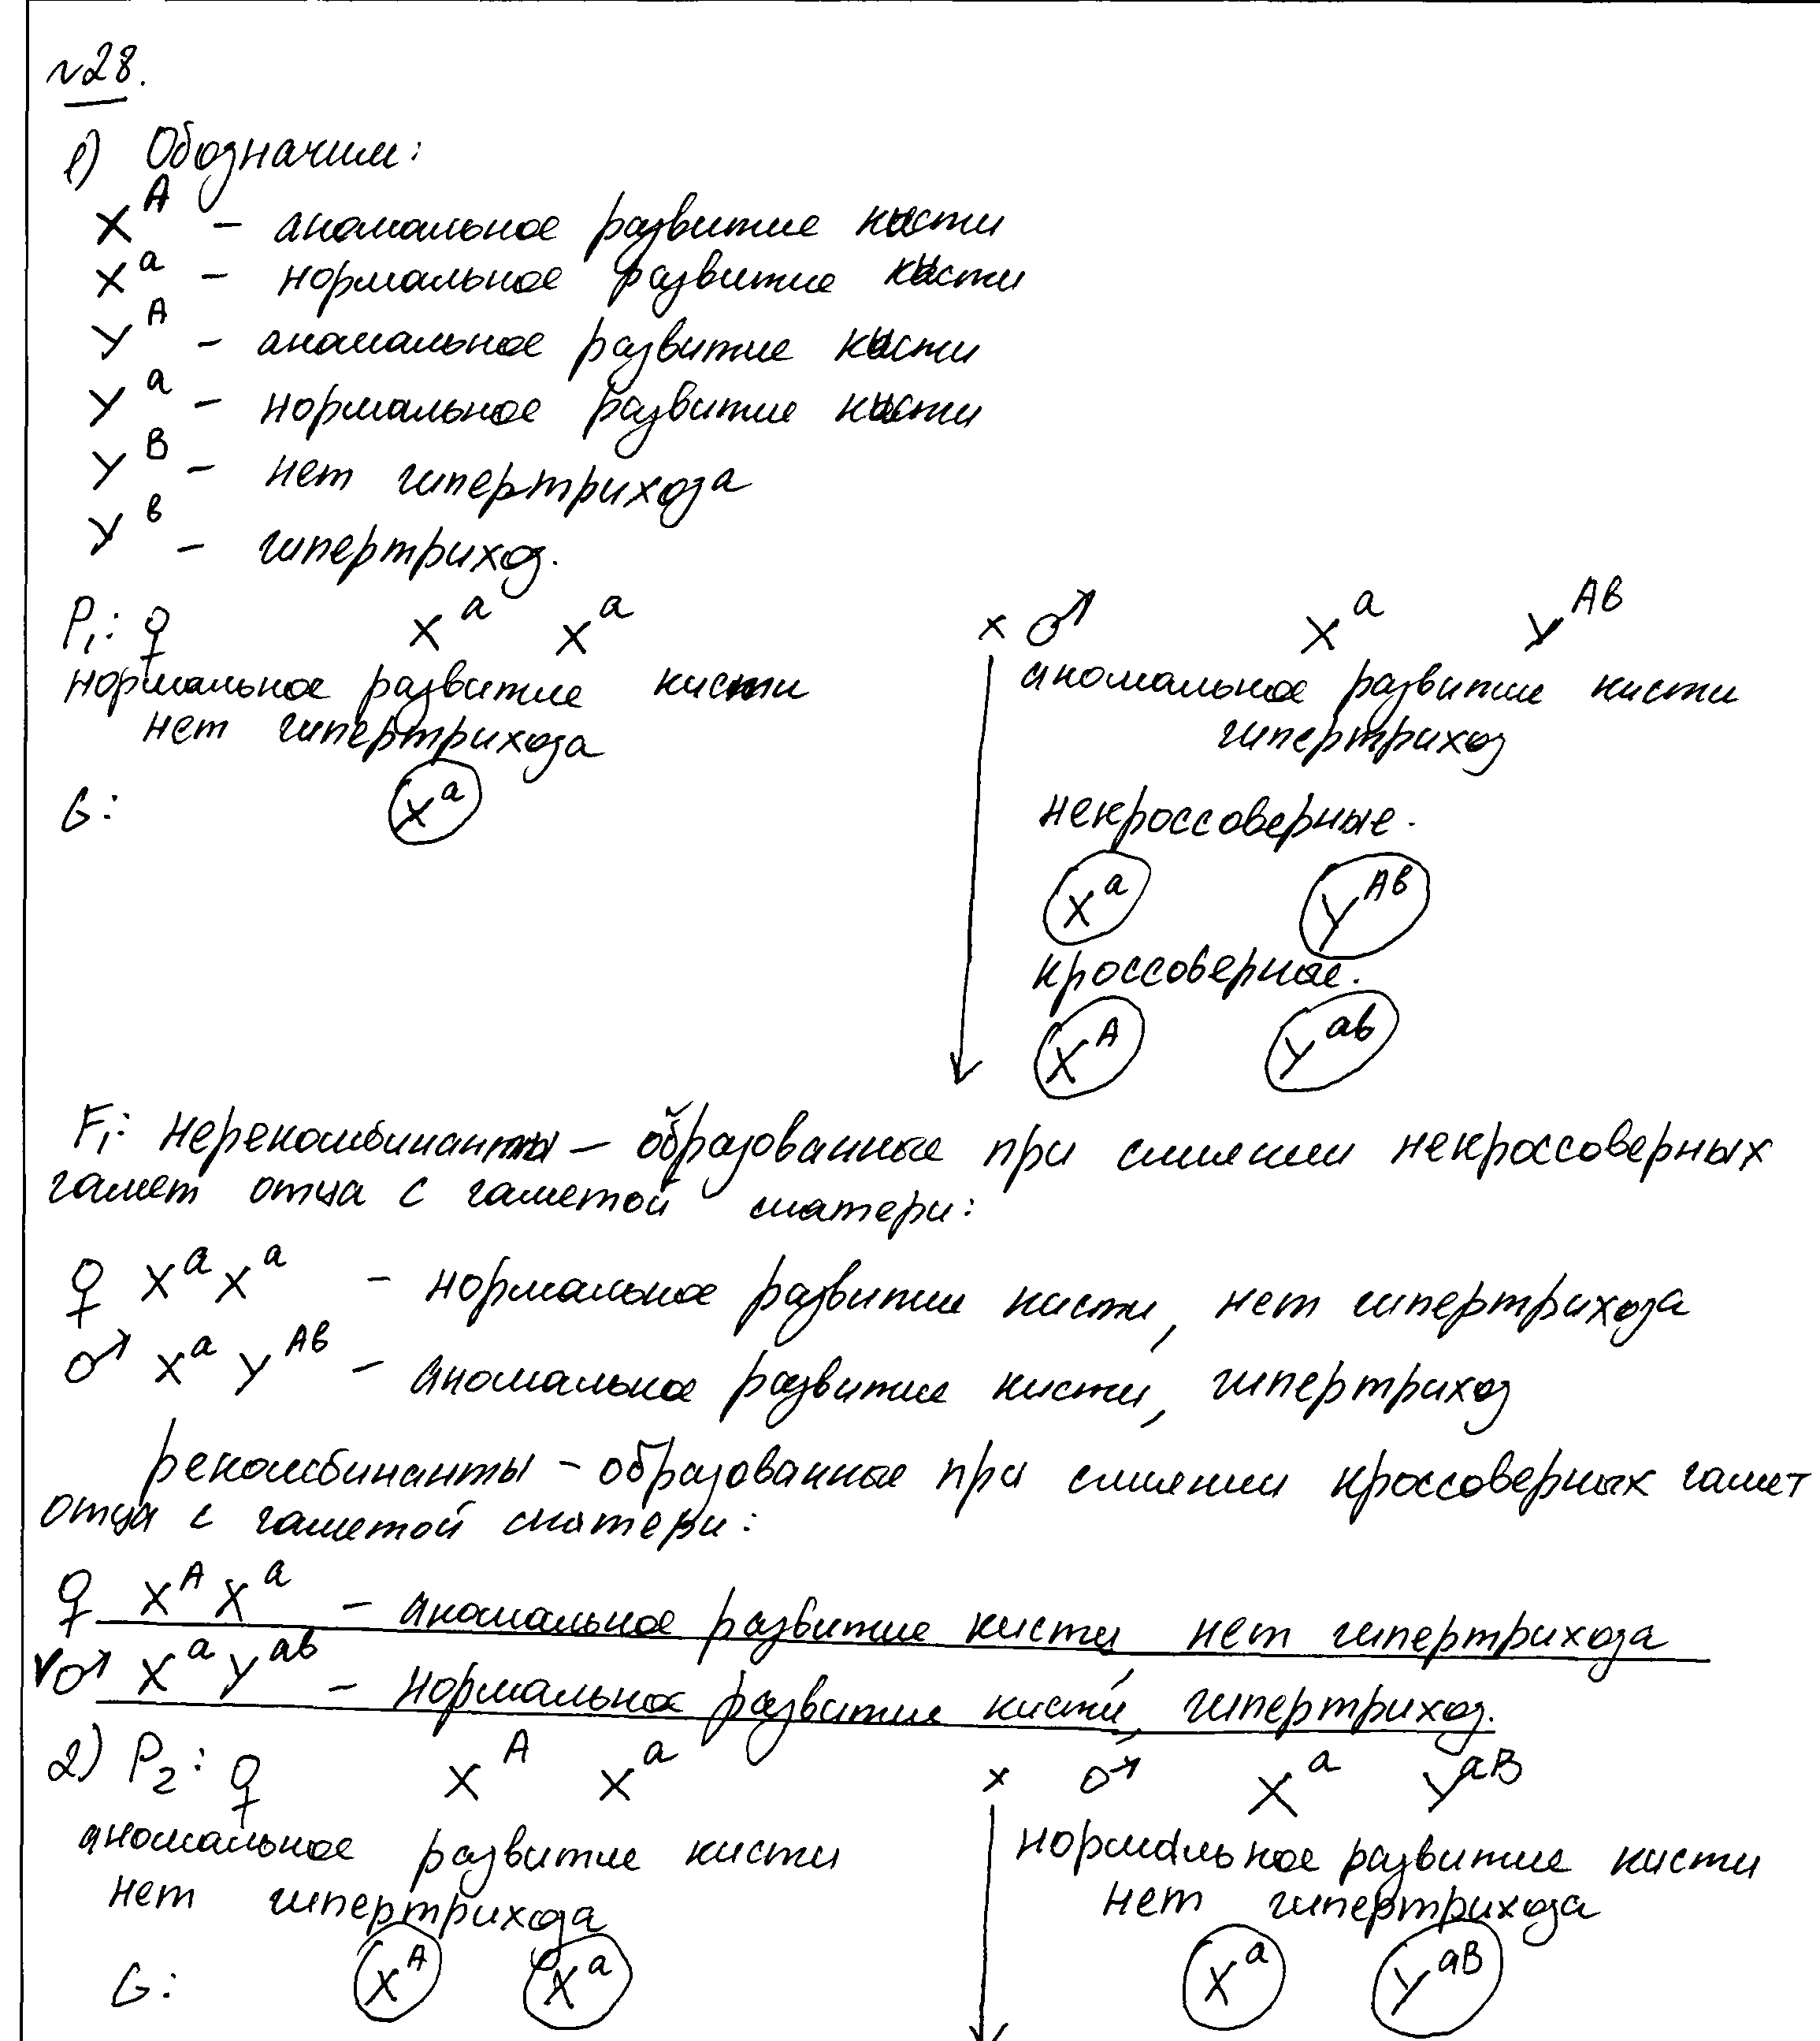 №28.
1) Обозначим:
X^A – аномальное развитие кисти
X^a – нормальное развитие кисти
Y^A – аномальное развитие кисти
Y^a – нормальное развитие кисти
Y^B – нет гипертрихоза
Y^b – гипертрихоз.
P₁: ♀ X^a X^a × ♂ X^a Y^Ab
нормальное развитие кисти аномальное развитие кисти
нет гипертрихоза гипертрихоз
G: X^a некроссоверные.
X^a Y^Ab
кроссоверные.
X^A Y^ab
F₁: Нерекомбинанты – образованные при слиянии некроссоверных
гамет отца с гаметой матери:
♀ X^a X^a – нормальное развитие кисти, нет гипертрихоза
♂ X^a Y^Ab – аномальное развитие кисти, гипертрихоз
рекомбинанты – образованные при слиянии кроссоверных гамет
отца с гаметой матери:
♀ X^A X^a – аномальное развитие кисти, нет гипертрихоза
✓♂ X^a Y^ab – нормальное развитие кисти, гипертрихоз.
2) P₂: ♀ X^A X^a × ♂ X^a Y^aB
аномальное развитие кисти нормальное развитие кисти
нет гипертрихоза нет гипертрихоза
G: X^A X^a X^a Y^aB